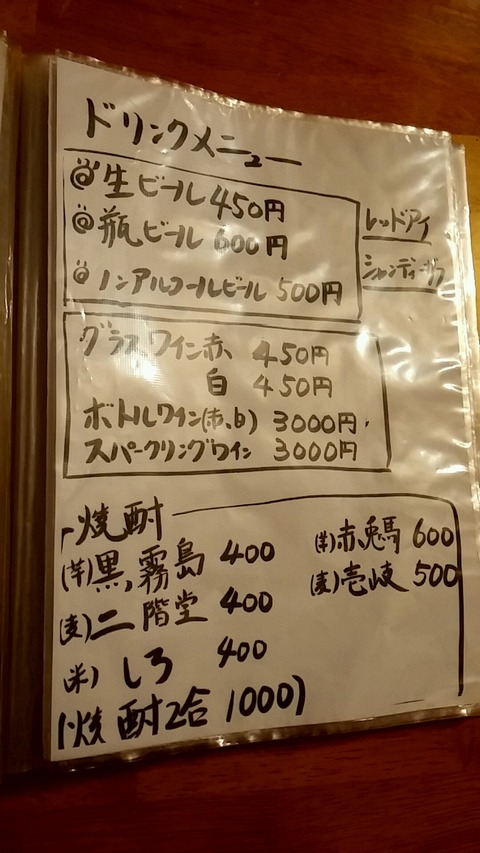 ドリンクメニュー
生ビール 450円
瓶ビール 600円
ノンアルコールビール 500円
レッドアイ
シャンディーガフ
グラスワイン赤、 450円
白 450円
ボトルワイン(赤、白) 3000円
スパークリングワイン 3000円
焼酎
(芋)黒霧島 400
(麦)二階堂 400
(米)しろ 400
(焼酎2合 1000)
(芋)赤兎馬 600
(麦)壱岐 500